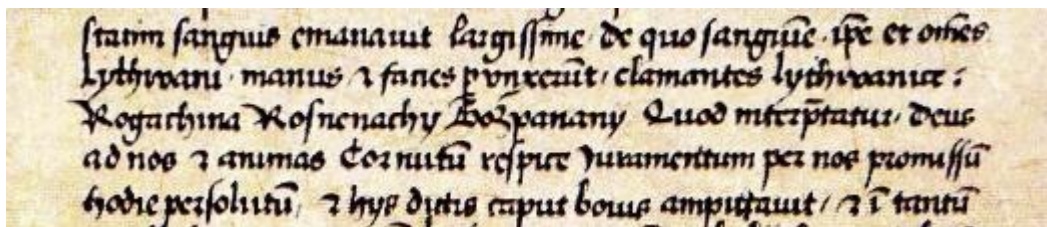 statim sanguis emanauit largissīme de quo sanguīe ip̄e et om̄es
Lythwani manus ⁊ facies ꝑvnxerūt / clamantes lythwanice :
Rogachina Rosnenachy Gozpanany Quod interp̄tatur / deus
ad nos ⁊ animas Cornutū respice Iuramentum per nos promissū
hodie persolutū / ⁊ hys dictis caput bouis amputauit / ⁊ ī tantū